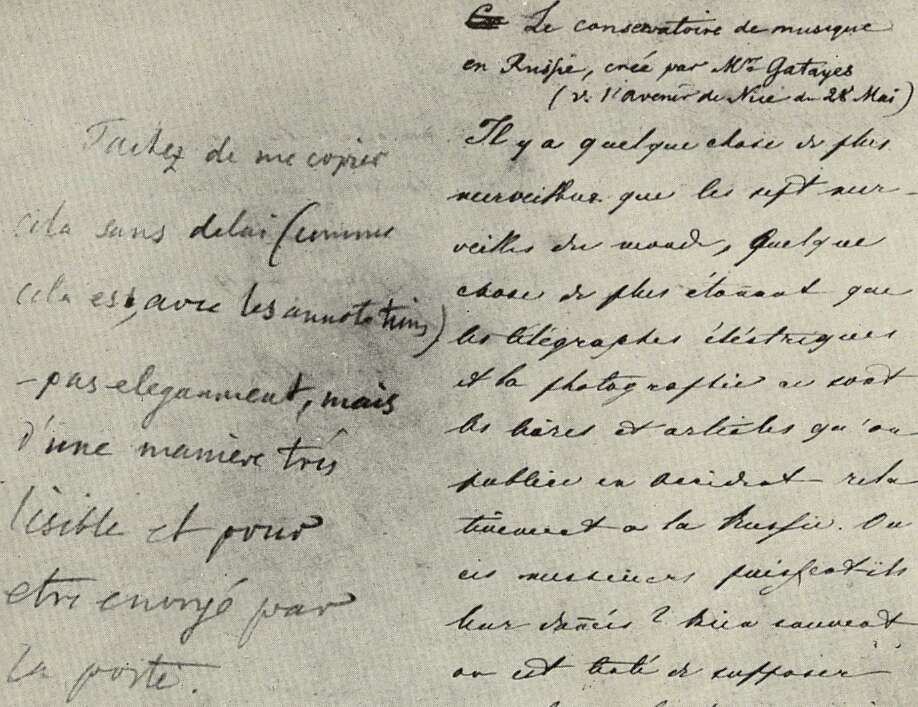 Tachez de me copier
cela sans delai (comme
cela est, avec les annotations)
- pas eleganment, mais
d'une manière très
lisible et pour
etre envoyé par
la poste.
Le conservatoire de musique
en Russie, créé par Mr Gatayes
(v. l'Avenir de Nice du 28 Mai)
Il y a quelque chose de plus
merveilleux que les sept mer-
veilles du monde, quelque
chose de plus étonnant que
les télégraphes éléctriques
et la photographie ce sont
les livres et articles qu'on
publie en occident rela
tivement a la Russie. Ou
ces messieurs puisent-ils
leur données? bien souvent
on est tenté de supposer